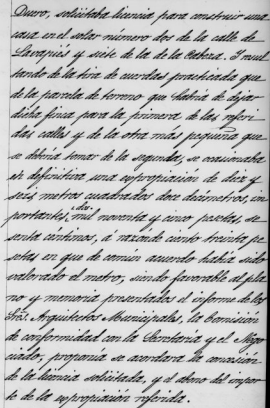 Duero, solicitaba licencia para construir una
casa en el solar número dos de la calle de
Lavapiés y siete de la de la Cabeza. Y resul
tando de la tira de cuerdas practicada que
de la parcela de terreno que habría de dejar
dicha finca para la primera de las referi
das calles y de la otra más pequeña que
se debería tomar de la segunda, se ocasionaba
en definitiva una expropiación de diez y
seis metros cuadrados doce decímetros, im
portantes, dos mil noventa y cinco pesetas, se
senta céntimos, á razón de ciento treinta pe
setas en que de común acuerdo había sido
valorado el metro, siendo favorable al pla
no y memoria presentados el informe de los
Sres. Arquitectos Municipales, la Comisión
de conformidad con la Secretaría y el Nego
ciado, proponía se acordara la concesión
de la licencia solicitada, y el abono del impor
te de la expropiación referida.